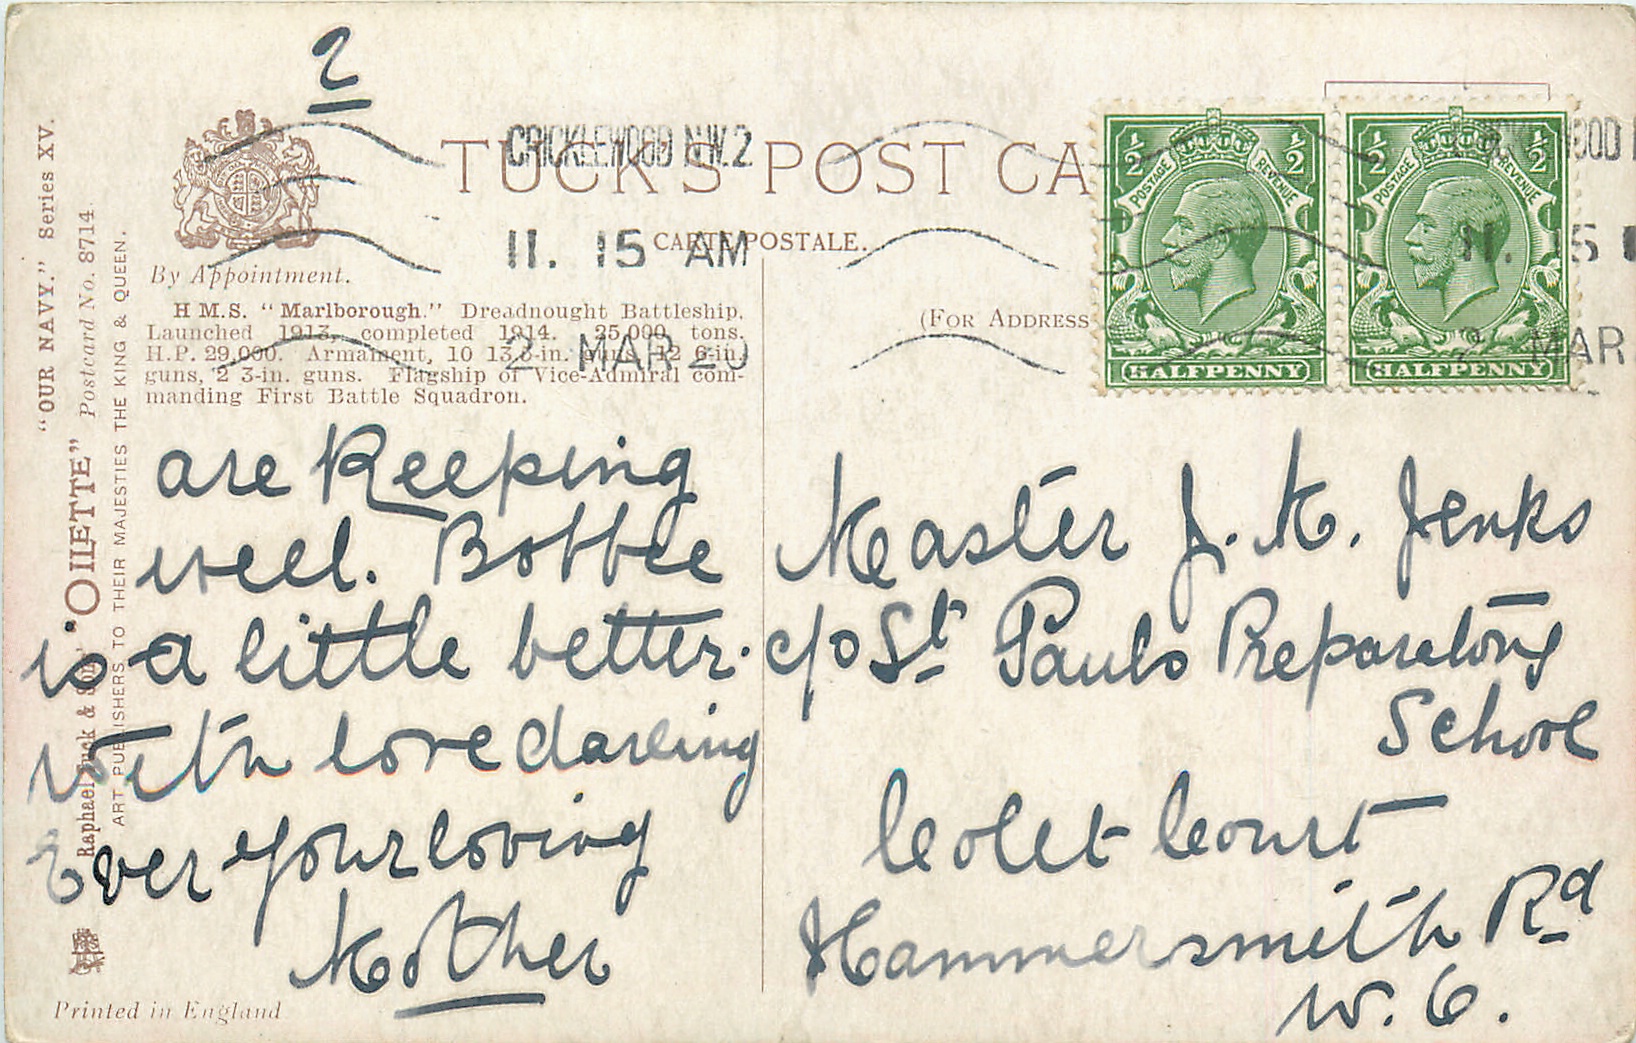 2
TUCK'S POST CA
CRICKLEWOOD N.W.2
11. 15 AM
2 MAR 20
CARTE POSTALE.
By Appointment.
H.M.S. "Marlborough." Dreadnought Battleship.
Launched 1913, completed 1914. 25,000 tons.
H.P. 29,000. Armament, 10 13.5-in. guns, 12 6-in.
guns, 2 3-in. guns. Flagship of Vice-Admiral com-
manding First Battle Squadron.
(FOR ADDRESS
½ ½
POSTAGE REVENUE
HALFPENNY
½ ½
POSTAGE REVENUE
HALFPENNY
OOD
11. 15
2 MAR
"OUR NAVY." Series XV.
"OILETTE" Postcard No. 8714.
Raphael Tuck & Sons'
ART PUBLISHERS TO THEIR MAJESTIES THE KING & QUEEN.
are keeping
well. Bobbie
is a little better.
With love darling
Ever your loving
Mother
Master J. M. Jenks
c/o St Pauls Preparatory
School
Colet Court
Hammersmith Rd
W. 6.
Printed in England